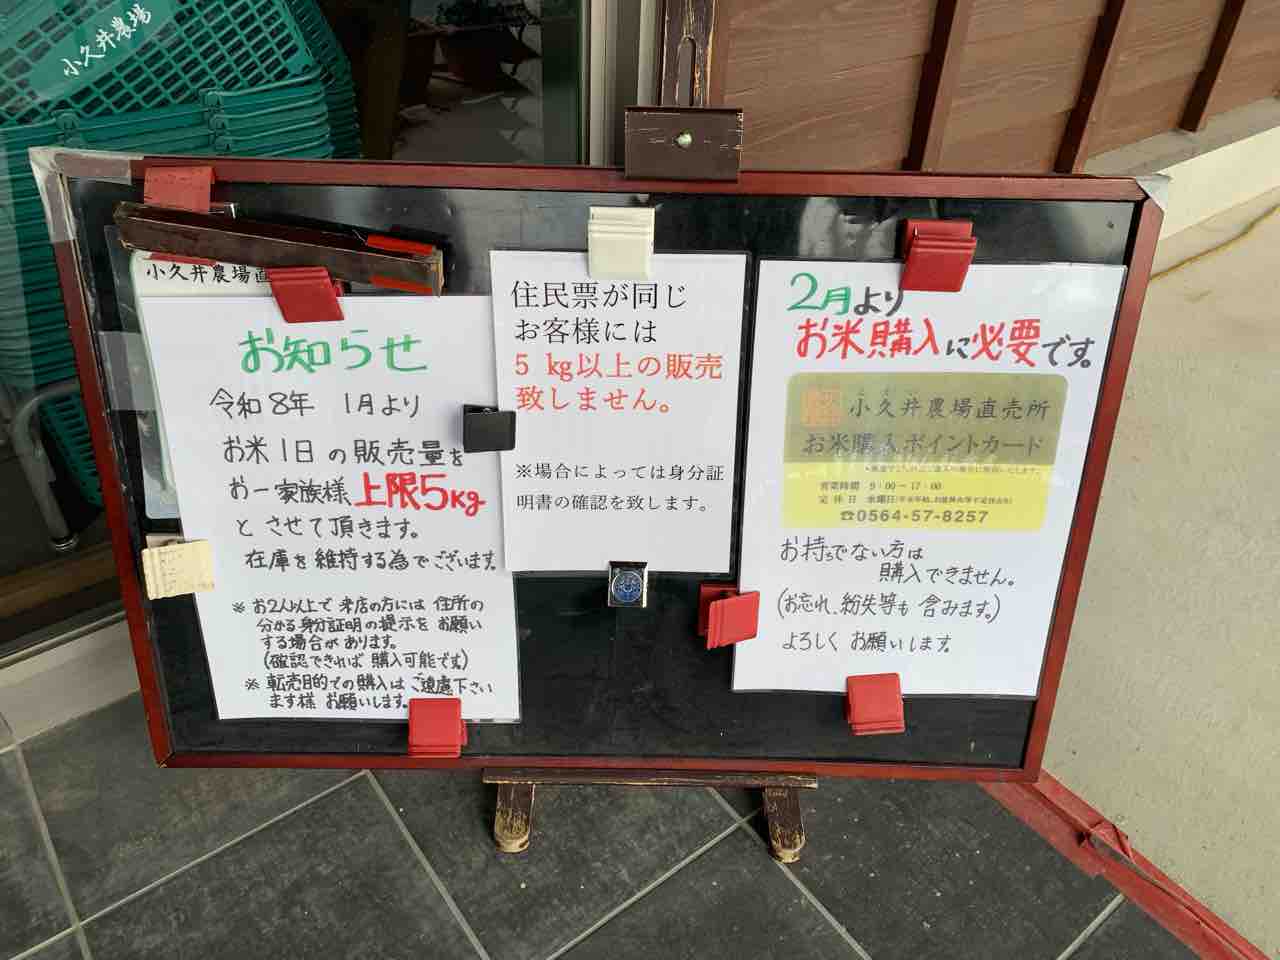 小久井農場
小久井農場直
お知らせ
令和8年 1月より
お米1日の販売量を
お一家族様上限5kg
とさせて頂きます。
在庫を維持する為でございます
※ お2人以上で来店の方には住所の
分かる身分証明の提示をお願い
する場合があります。
(確認できれば購入可能です)
※ 転売目的での購入はご遠慮下さい
ます様お願いします。
住民票が同じ
お客様には
5 kg以上の販売
致しません。
※場合によっては身分証
明書の確認を致します。
2月より
お米購入に必要です。
小久井農場直売所
お米購入ポイントカード
営業時間 9:00～17:00
定休日 水曜日
☎0564-57-8257
お持ちでない方は
購入できません。
(お忘れ、紛失等も含みます。)
よろしくお願いします。